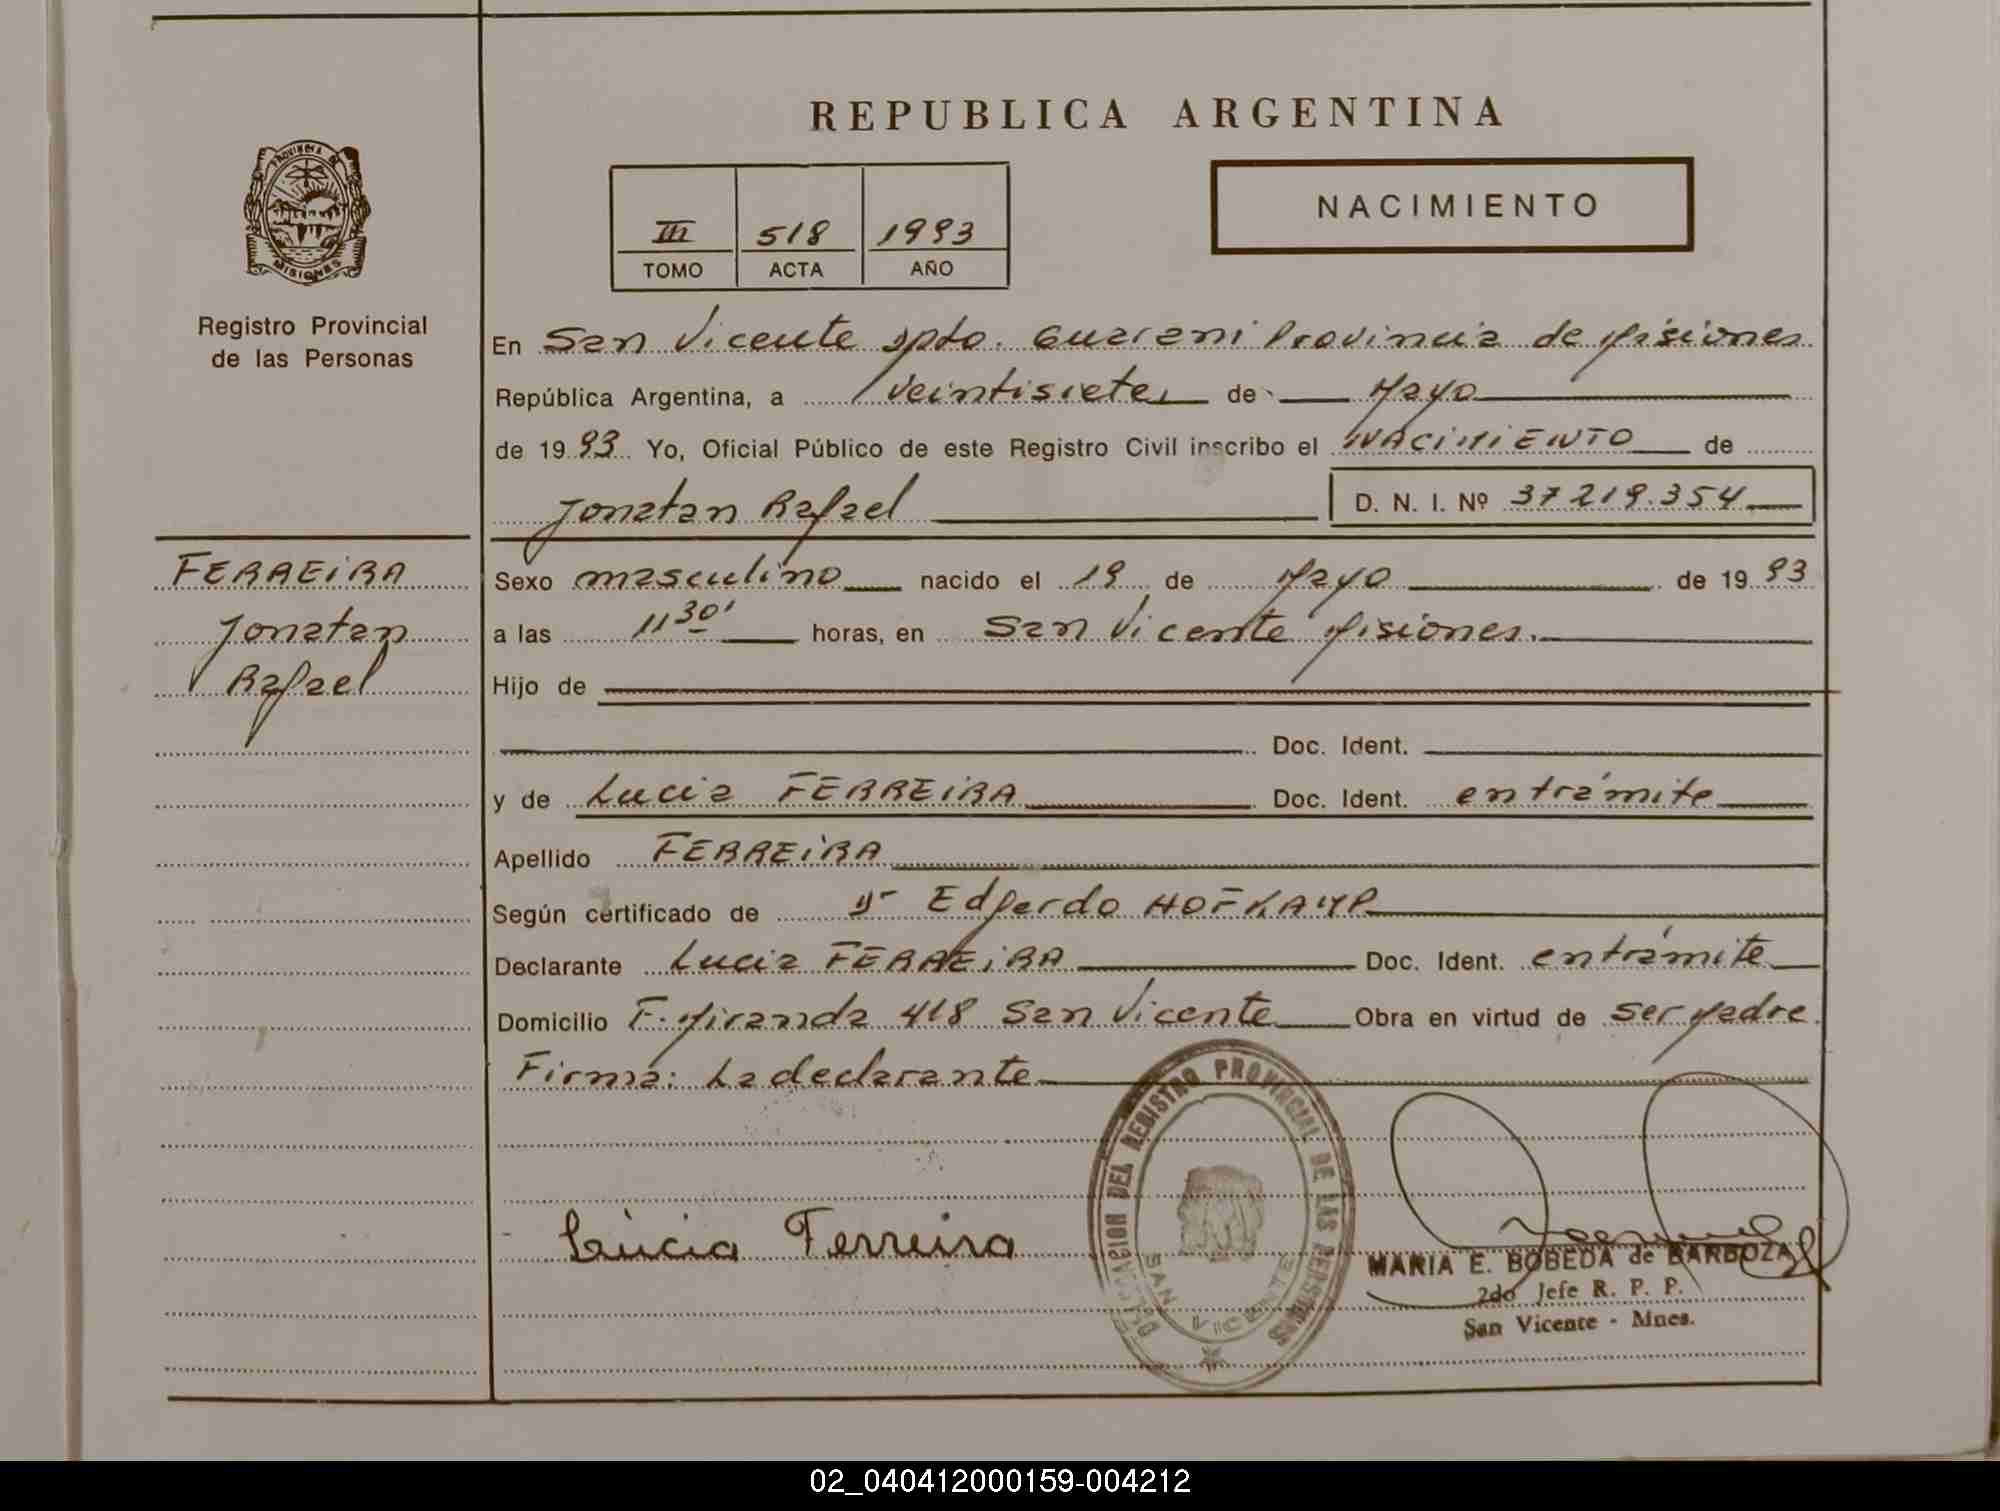 REPUBLICA ARGENTINA
PROVINCIA DE
MISIONES
Registro Provincial
de las Personas
III 518 1993
TOMO ACTA AÑO
NACIMIENTO
En San Vicente dpto. Guarani Provincia de Misiones
República Argentina, a veintisiete de Mayo
de 1993 Yo, Oficial Público de este Registro Civil inscribo el NACIMIENTO de
Jonatan Rafael D. N. I. Nº 37219.354
FERREIRA
Jonatan
Rafael
Sexo masculino nacido el 19 de Mayo de 1993
a las 11 30' horas, en San Vicente Misiones.
Hijo de
Doc. Ident.
y de Lucia FERREIRA Doc. Ident. entrámite
Apellido FERREIRA
Según certificado de Dr Edgardo HOFKAMP
Declarante Lucia FERREIRA Doc. Ident. entrámite
Domicilio F. Miranda 418 San Vicente Obra en virtud de ser Madre
Firma: La declarante
Lúcia Ferreira
DELEGACION DEL REGISTRO PROVINCIAL DE LAS PERSONAS
SAN VICENTE
MARIA E. BOBEDA de BARBOZA
2do Jefe R. P. P.
San Vicente - Mnes.
02_040412000159-004212